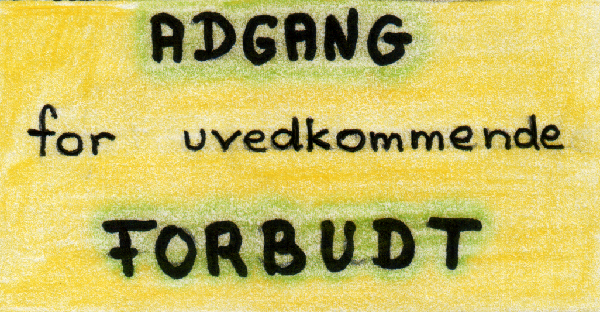 ADGANG
for uvedkommende
FORBUDT